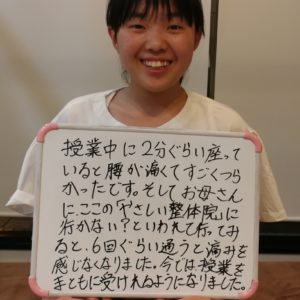 授業中に2分ぐらい座って
いると腰が痛くてすごくつら
かったです。そしてお母さん
にここの「やさしい整体院」に
行かない?といわれて行ってみ
ると、6回ぐらい通うと痛みを
感じなくなりました。今では授業を
まともに受けれるようになりました。